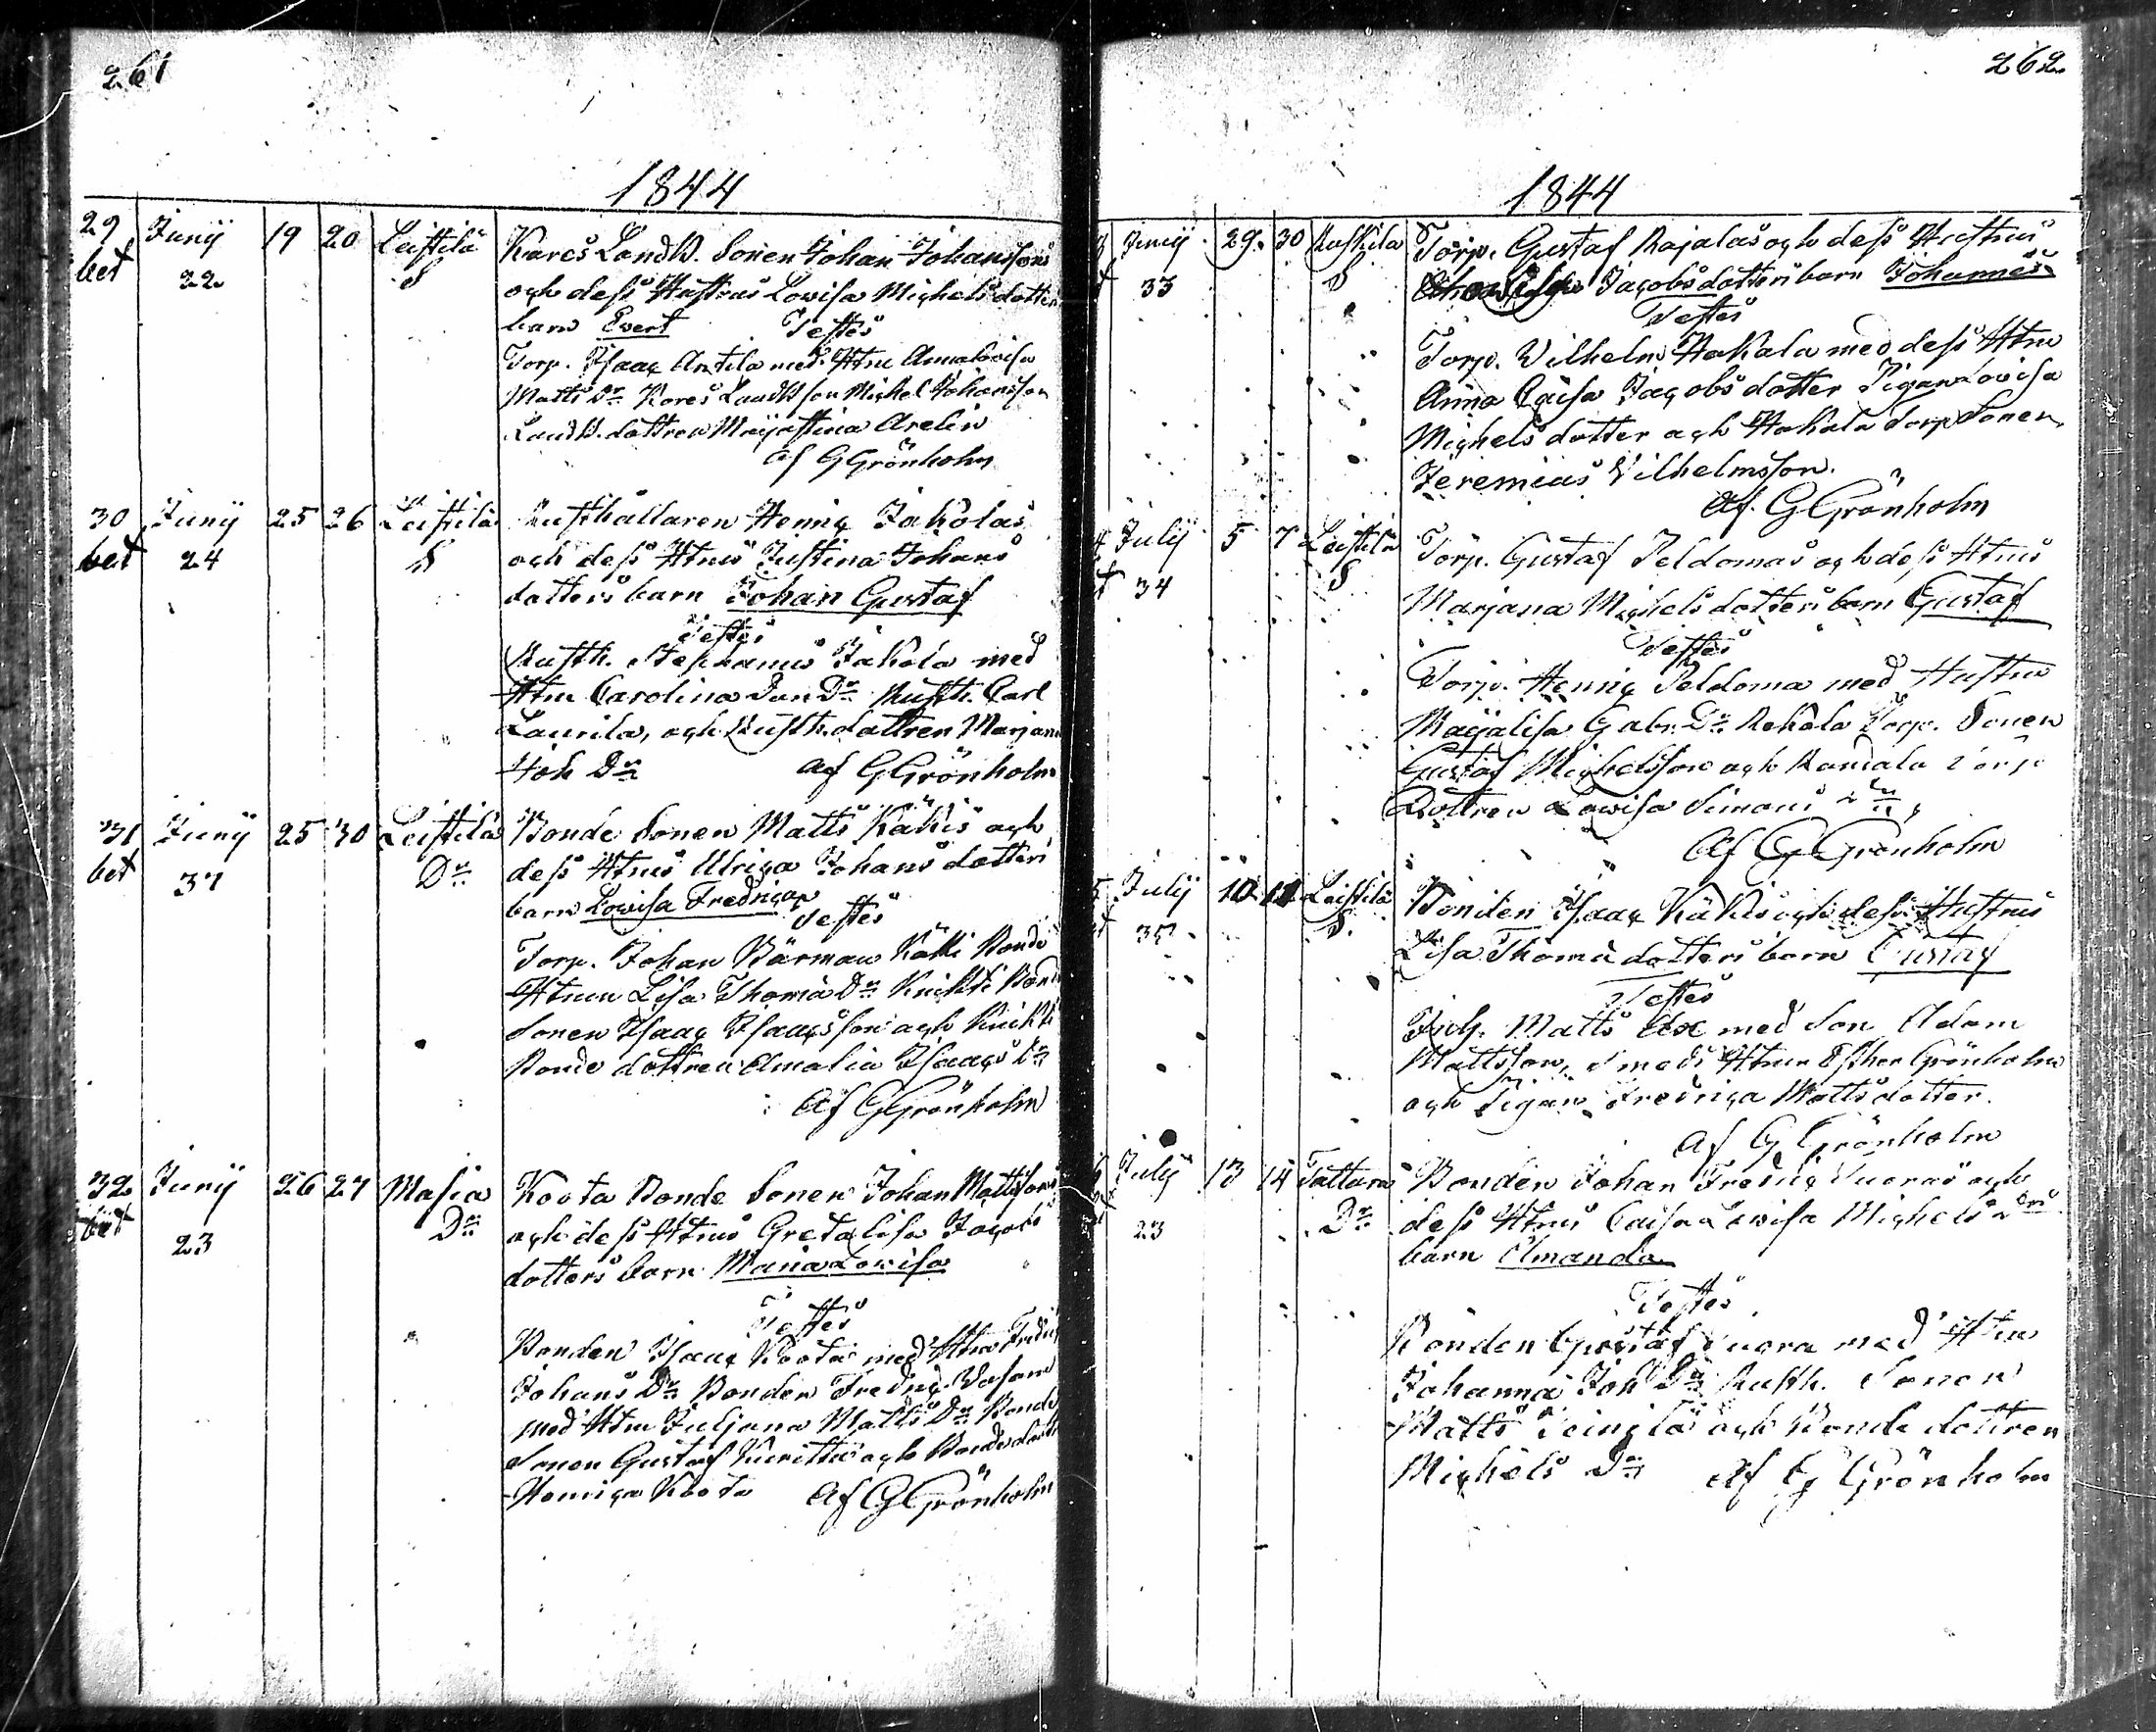 261
1844
29 Junij 19 20 Leistilä Kares Landb. Sonen Johan Johanssons
bet 22 S och dess Hustrus Lovisa Michelsdotters
barn Evert Testes
Torp. Isaac Antila med Htru Annalovisa
Matts Dr. Kares Landb son Michel Johansson
Landb. dottren Majastina Arelin
af G Grönholm
30 Junij 25 26 Leistilä Rusthållaren Henric Jakolas
bet 24 S och dess Htrus Justina Johans
dotters barn Johan Gustaf
Testes
Rusth. Stephanus Jakola med
Htru Carolina Dan Dr. Rusth. Carl
Laurila, och Rusth. dottren Marjana
Joh Dr. af G Grönholm
31 Junij 25 30 Leistilä Bonde Sonen Matts Käkis och
bet 37 Dr. dess Htrus Ulrica Johansdotters
barn Lovisa Fredrica
Testes
Torp. Johan Bärman Bonde
Htrun Lisa Thomæ Dr. Knickti Bonde
Sonen Isaac Isaacsson och Knickti
Bonde dottren Amalia Isaacs Dr.
af G Grönholm
32 Junij 26 27 Masia Koota Bonde Sonen Johan Mattssons
bet 23 Dr. och dess Htrus Gretalisa Jacobs
dotters barn Maria Lovisa
Testes
Bonden Isaac Koota med Htru
Johans Dr. Bonden Fredric
med Htru Juljana Matts Dr. Bonde
Sonen Gustaf och Bondedottr
Henrica Koota af G Grönholm
262
1844
3 Junij 29. 30 Torp. Gustaf Rajalas och dess Hustrus
t 33 S Jacobsdotters barn Johannes
Testes
Torp. Wilhelm Hakala med dess Htru
Anna Caisa Jacobsdotter Pigan Lovisa
Michelsdotter och Hakala Torp Sonen
Jeremias Wilhelmsson.
af. G Grönholm
4 Julij 5 7 Leistilä Torp. Gustaf Peldomas och dess Htrus
t 34 S Marjana Michelsdotters barn Gustaf
Testes
Torp. Henric Peldoma med Hustru
Majalisa Gabr. Dr. Torp. Sonen
Gustaf Michelsson och Torp
Dottren Lovisa Simons Dr.
af G Grönholm
5 Julij 10 11 Leistilä Bonden Isaac Käkis och dess Hustrus
t 35 S. Lisa Thomædotters barn Gustaf
Testes
Matts Ax med Son Adam
Mattsson, Smeds Htrun Esther Grönholm
och Pigan Fredrica Mattsdotter.
af G Grönholm
6 Julij 13 14 Tattara Bonden Johan Fredric Suoras och
23 Dr. dess Htrus Caisa Lovisa Michels Drs
barn Amanda
Testes
Bonden Gustaf Suora med Htru
Johanna Joh Dr. Rusth. Sonen
Matts och Bonde dottren
Michels Dr. af G Grönholm